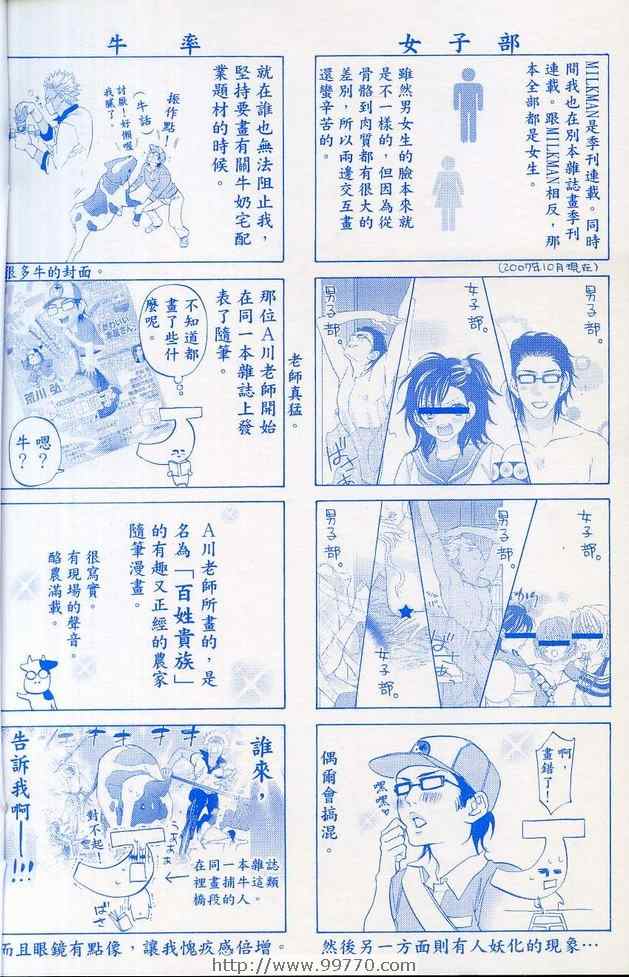 女子部
MILKMAN是季刊連載。同時
間我也在別本雜誌畫季刊
連載。跟MILKMAN相反,那
本全部都是女生。
雖然男女生的臉本來就
是不一樣的,但因為從
骨骼到肉質都有很大的
差別,所以兩邊交互畫
還蠻辛苦的。
(2007年10月現在)
男子部。
女子部。
男子部。
女子部。
男子部。
女子部。
男子部。
啊,
畫錯了!
嘿
嘿
偶爾會搞混。
然後另一方面則有人妖化的現象…
牛 率
就在誰也無法阻止我,
堅持要畫有關牛奶宅配
業題材的時候。
振作點!
(牛話)
討厭!好懶喔
我膩了。
很多牛的封面。
那位A川老師開始
在同一本雜誌上發
表了隨筆。
老師真猛。
不知道都
畫了些什
麼呢。
荒川 弘
嗯?
牛?
A川老師所畫的,是
名為「百姓貴族」
的有趣又正經的農家
隨筆漫畫。
很寫實。
有現場的聲音。
酪農滿載。
誰來,
告訴我啊——!!!
對不起!
在同一本雜誌
裡畫捕牛這類
橋段的人。
而且眼鏡有點像,讓我愧疚感倍增。
http://www.99770.com